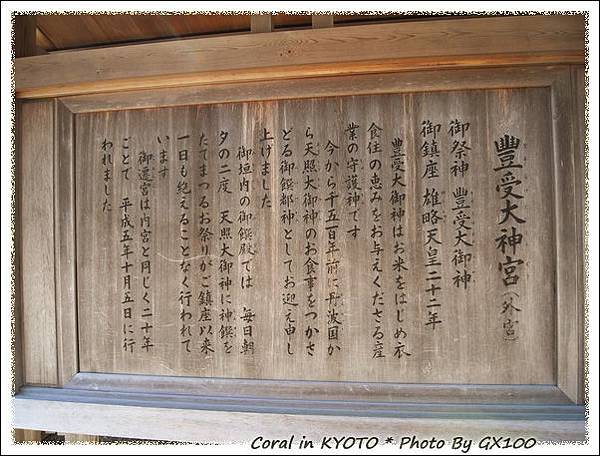 豐受大神宮（外宮）
御祭神 豐受大御神
御鎮座 雄略天皇二十二年
豐受大御神はお米をはじめ衣
食住の恵みをお与えくださる産
業の守護神です
今から千五百年前に丹波国か
ら天照大御神のお食事をつかさ
どる御饌都神としてお迎え申し
上げました
御垣内の御饌殿では 毎日朝
夕の二度 天照大御神に神饌を
たてまつるお祭りがご鎮座以来
一日も絶えることなく行われて
います
御遷宮は内宮と同じく二十年
ごとで 平成五年十月五日に行
われました
Coral in KYOTO * Photo By GX100